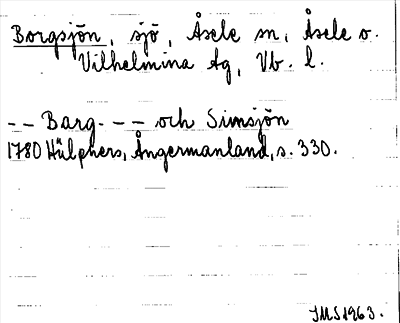 Borgsjön, sjö, Åsele sn, Åsele o.
Vilhelmina tg, Vb. l.
-- Barg. -- och Simsjön
1780 Hülphers, Ångermanland, s. 330.
IMS 1963.